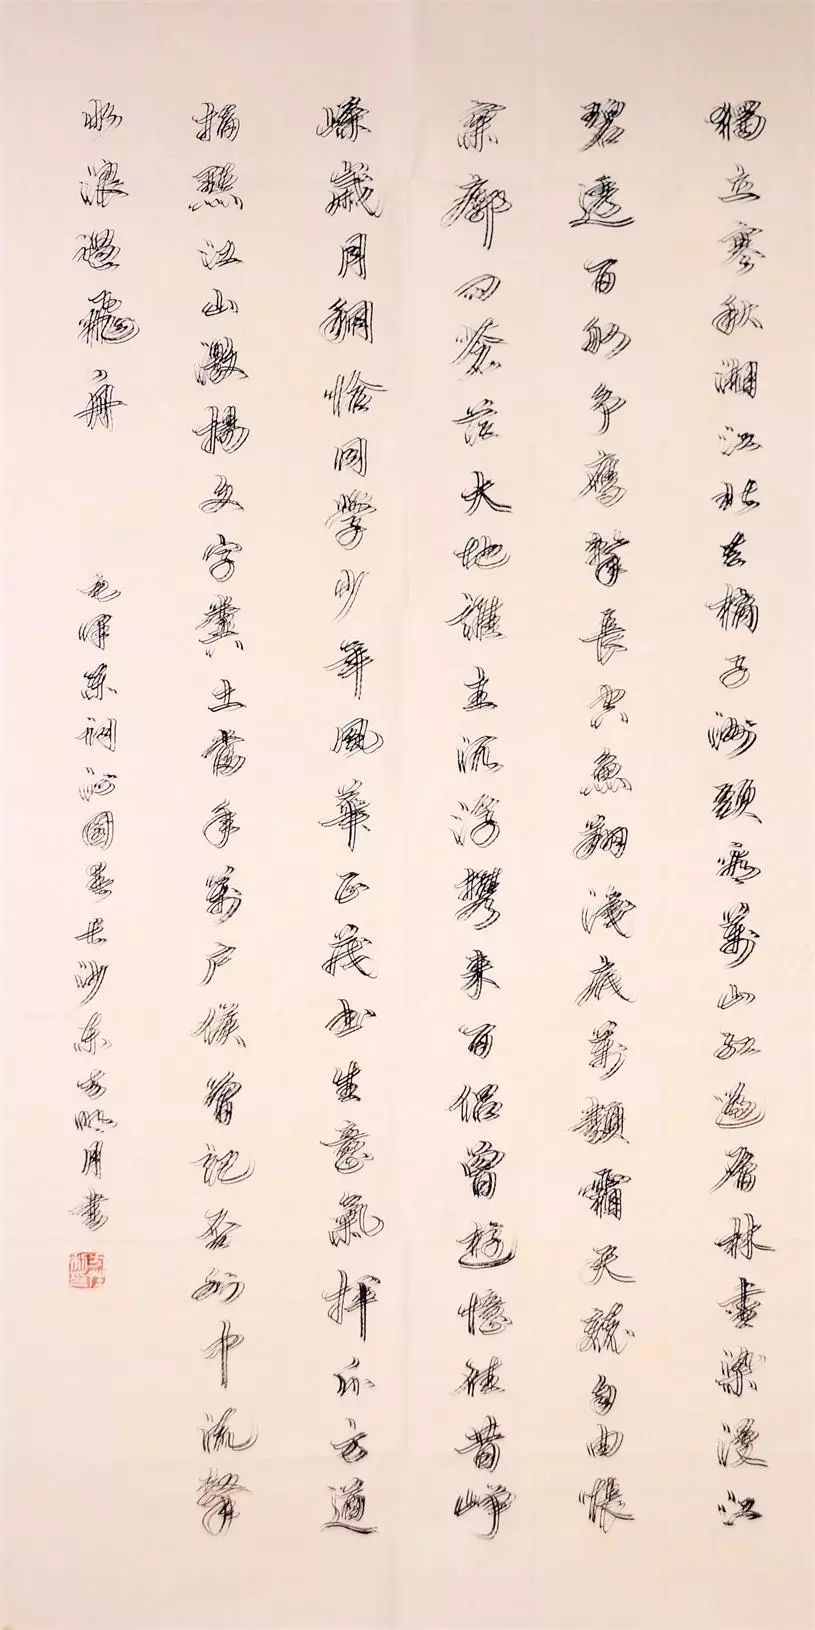 獨立寒秋湘江北去橘子洲頭看萬山紅遍層林盡染漫江
碧透百舸争鷹擊長空魚翔淺底萬類霜天競自由悵
寥廓問蒼茫大地誰主沉浮攜來百侶曾遊憶往昔崢
嶸歲月稠恰同學少年風華正茂書生意氣揮斥方遒
指點江山激揚文字糞土當年萬户侯曾記否到中流擊
水浪遏飛舟
毛澤东詞沁園春长沙东方明月書